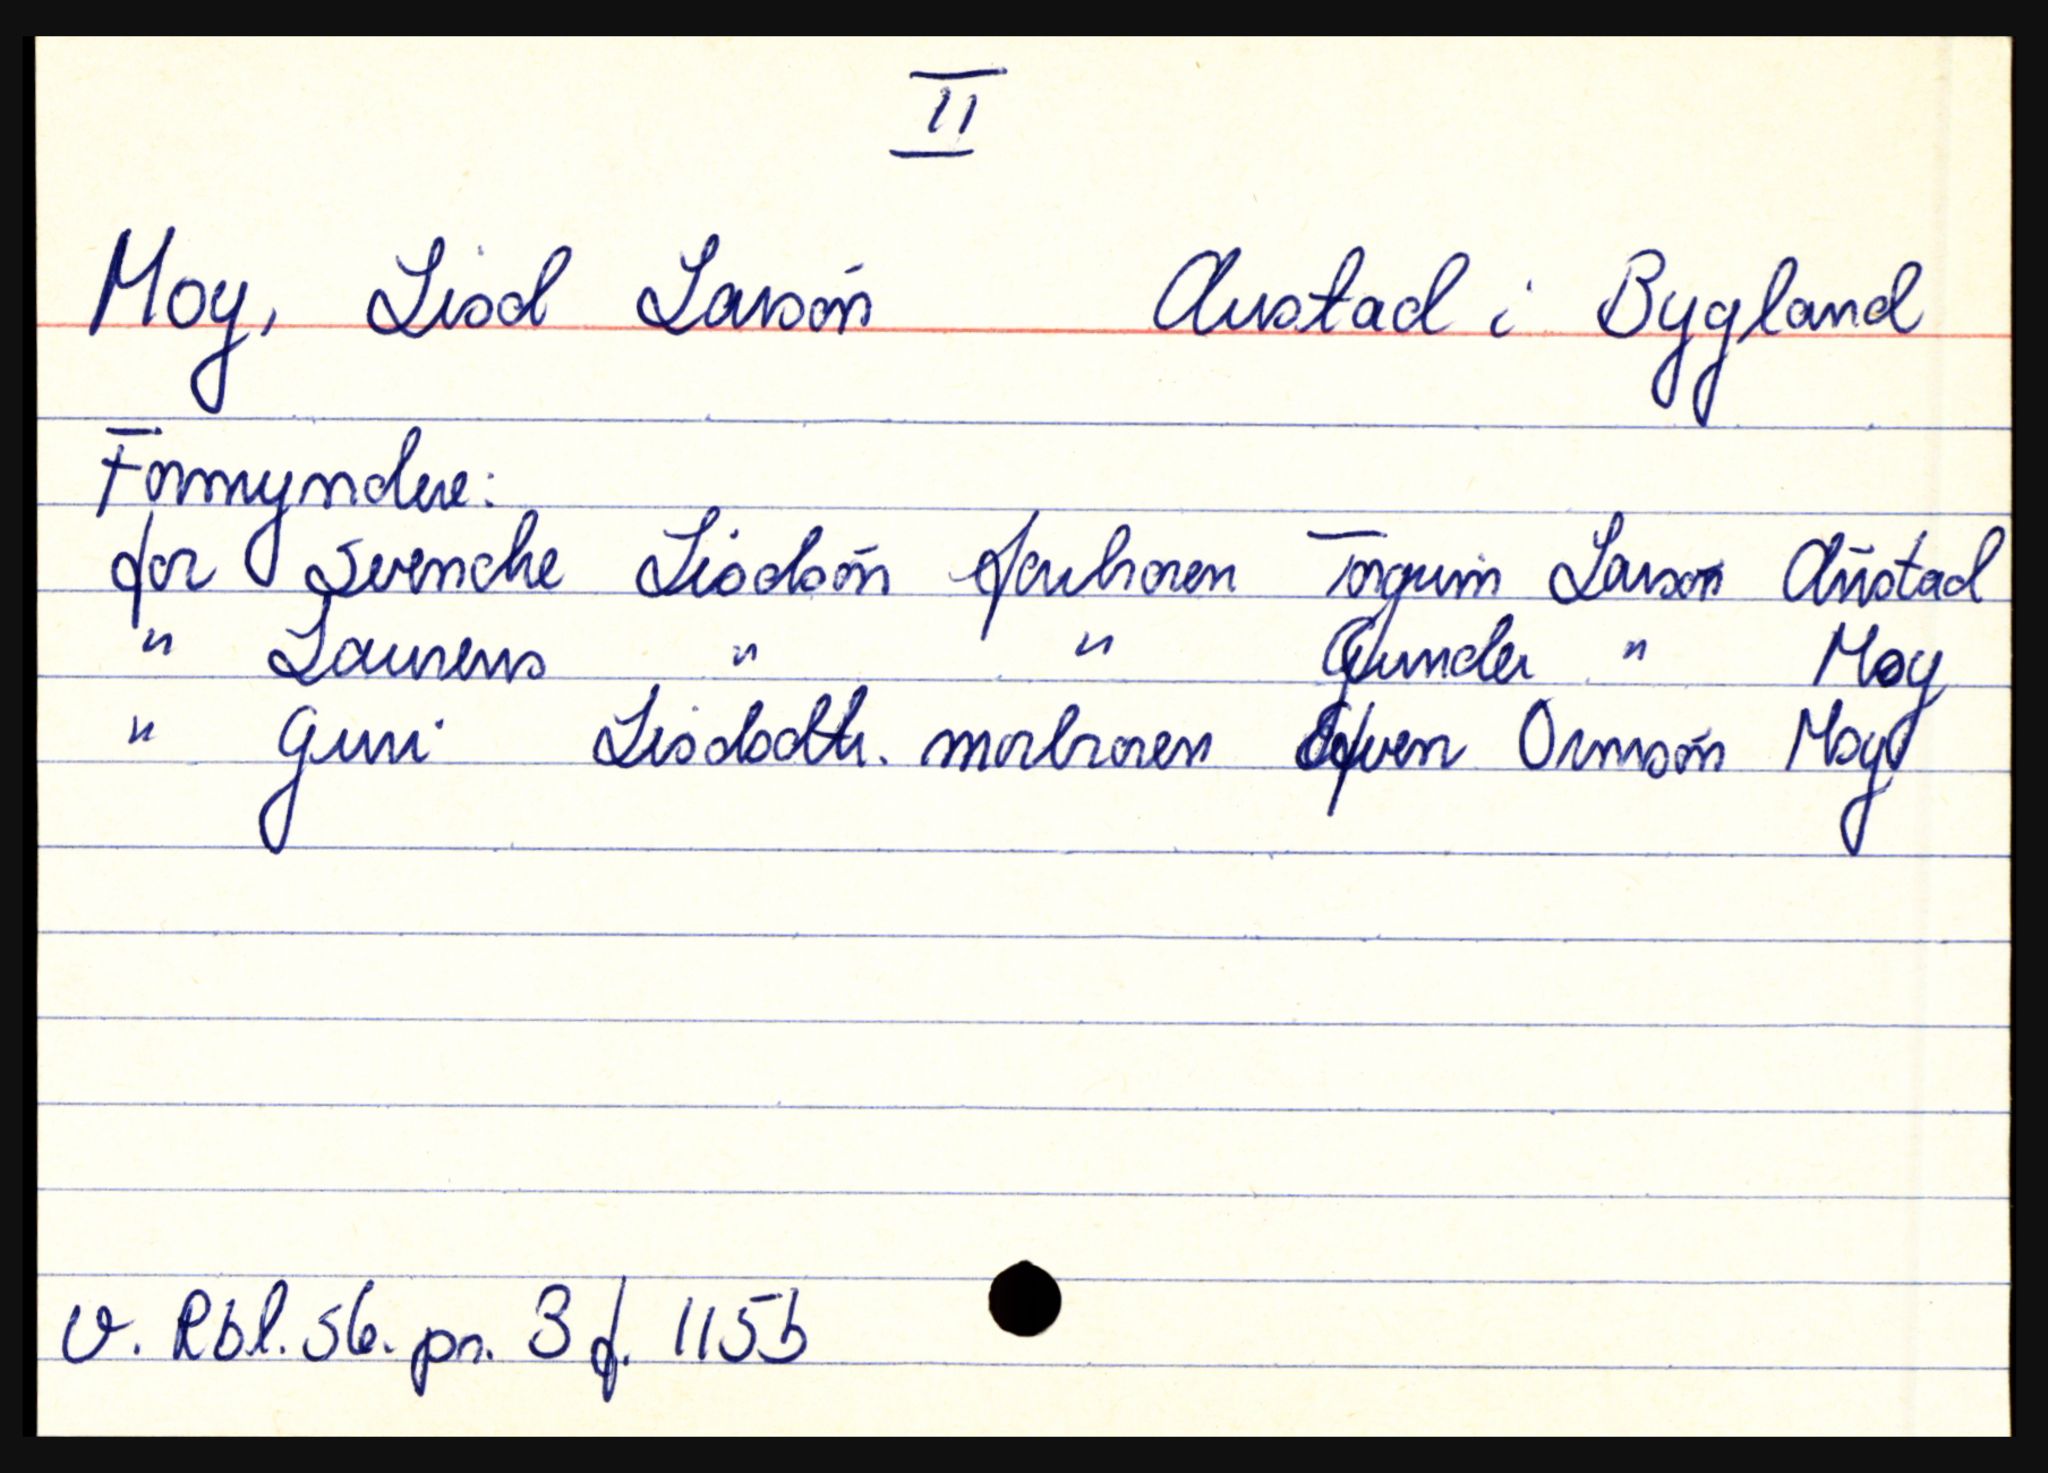 II
Moy, Lisd Larsón Austad i Bygland
Formyndere:
for Svenche Lisdsón farbroren Torgrim Larson Aústad
" Laurens " " Gunder " Moy
" Guri Lisdsdtr. morbroren Ormsón Moy
v. Rbl. sk. pr. 3 f. 115b